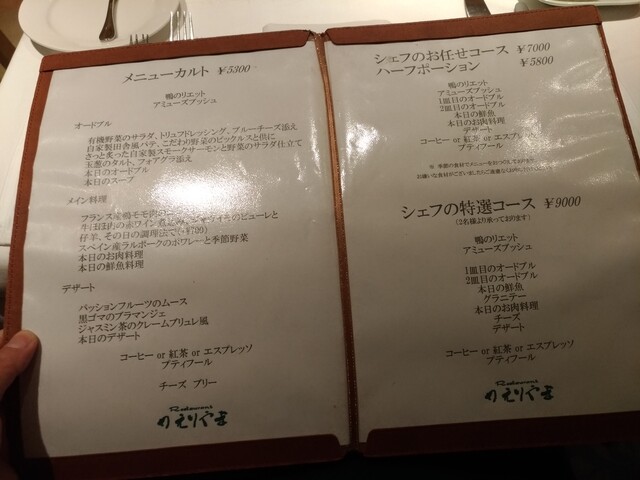 メニューカルト ¥5300
鴨のリエット
アミューズブッシュ
オードブル
有機野菜のサラダ、トリュフドレッシング、ブルーチーズ添え
自家製田舎風パテ、こだわり野菜のピックルスと共に
さっと炙った自家製スモークサーモンと野菜のサラダ仕立て
玉葱のタルト、フォアグラ添え
本日のオードブル
本日のスープ
メイン料理
フランス産鴨モモ肉の
牛ほほ肉の赤ワイン煮込み、ジャガイモのピューレと
仔羊、その日の調理法で(+¥700)
スペイン産ラルポークのポワレーと季節野菜
本日のお肉料理
本日の鮮魚料理
デザート
パッションフルーツのムース
黒ゴマのブラマンジェ
ジャスミン茶のクレームブリュレ風
本日のデザート
コーヒー or 紅茶 or エスプレッソ
プティフール
チーズ ブリー
Restaurant
のえりやま
シェフのお任せコース ¥7000
ハーフポーション ¥5800
鴨のリエット
アミューズブッシュ
1皿目のオードブル
2皿目のオードブル
本日の鮮魚
本日のお肉料理
デザート
コーヒー or 紅茶 or エスプレ
プティフール
※ 季節の食材でメニューを
お嫌いな食材がございましたら
シェフの特選コース ¥9000
(2名様より承っております)
鴨のリエット
アミューズブッシュ
1皿目のオードブル
2皿目のオードブル
本日の鮮魚
グラニテー
本日のお肉料理
チーズ
デザート
コーヒー or 紅茶 or エスプレッソ
プティフール
Restaurant
のえりやま